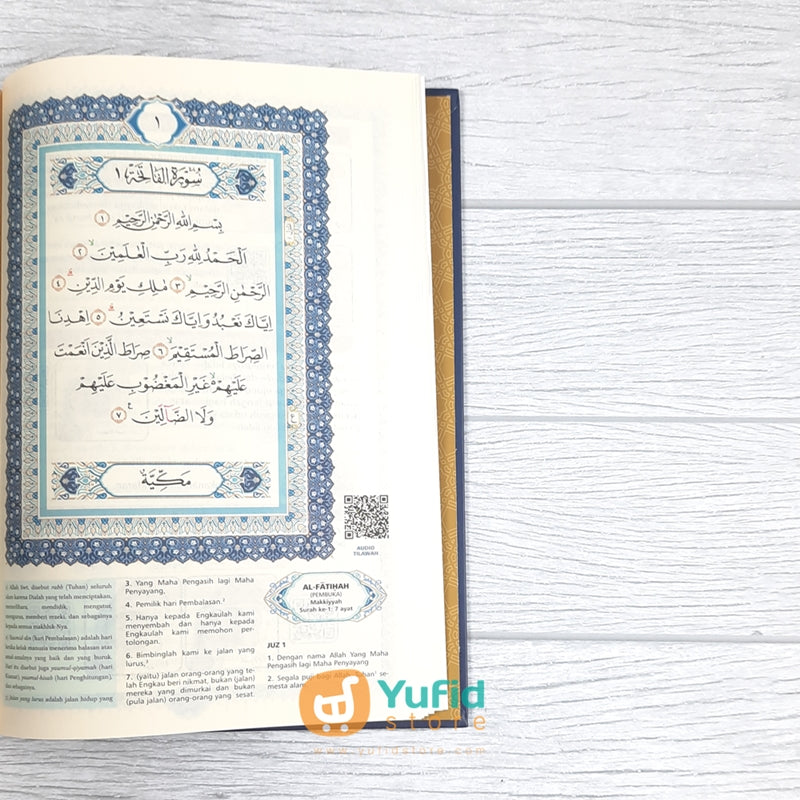 ١
سُوْرَةُ الْفَاتِحَةِ ١
بِسْمِ اللّٰهِ الرَّحْمٰنِ الرَّحِيْمِ ١
اَلْحَمْدُ لِلّٰهِ رَبِّ الْعٰلَمِيْنَۙ ٢
الرَّحْمٰنِ الرَّحِيْمِۙ ٣ مٰلِكِ يَوْمِ الدِّيْنِۗ ٤
اِيَّاكَ نَعْبُدُ وَاِيَّاكَ نَسْتَعِيْنُۗ ٥ اِهْدِنَا
الصِّرَاطَ الْمُسْتَقِيْمَۙ ٦ صِرَاطَ الَّذِيْنَ اَنْعَمْتَ
عَلَيْهِمْ ەۙ غَيْرِ الْمَغْضُوْبِ عَلَيْهِمْ
وَلَا الضَّاۤلِّيْنَࣖ ٧
مَكِّيَّةٌ
AUDIO
TILAWAH
AL-FĀTIḤAH
(PEMBUKA)
Makkiyyah
Surah ke-1: 7 ayat
JUZ 1
1. Dengan nama Allah Yang Maha
Pengasih lagi Maha Penyayang
2. Segala puji bagi Allah, Tuhan¹ se-
mesta alam
3. Yang Maha Pengasih lagi Maha
Penyayang,
4. Pemilik hari Pembalasan.²
5. Hanya kepada Engkaulah kami
menyembah dan hanya kepada
Engkaulah kami memohon per-
tolongan.
6. Bimbinglah kami ke jalan yang
lurus,³
7. (yaitu) jalan orang-orang yang te-
lah Engkau beri nikmat, bukan (jalan)
mereka yang dimurkai dan bukan
(pula jalan) orang-orang yang sesat.
Allah Swt. disebut rabb (Tuhan) seluruh
alam karena Dialah yang telah menciptakan,
memelihara, mendidik, mengatur,
mengurus, memberi rezeki, dan sebagainya
kepada semua makhluk-Nya.
Yaumud-dīn (hari Pembalasan) adalah hari
ketika kelak manusia menerima balasan atas
amal-amalnya yang baik dan yang buruk.
Hari itu disebut juga yaumul-qiyāmah (hari
Kiamat), yaumul-ḥisāb (hari Penghitungan),
dan sebagainya.
Jalan yang lurus adalah jalan hidup yang
Yufid
store
www.yufidstore.com